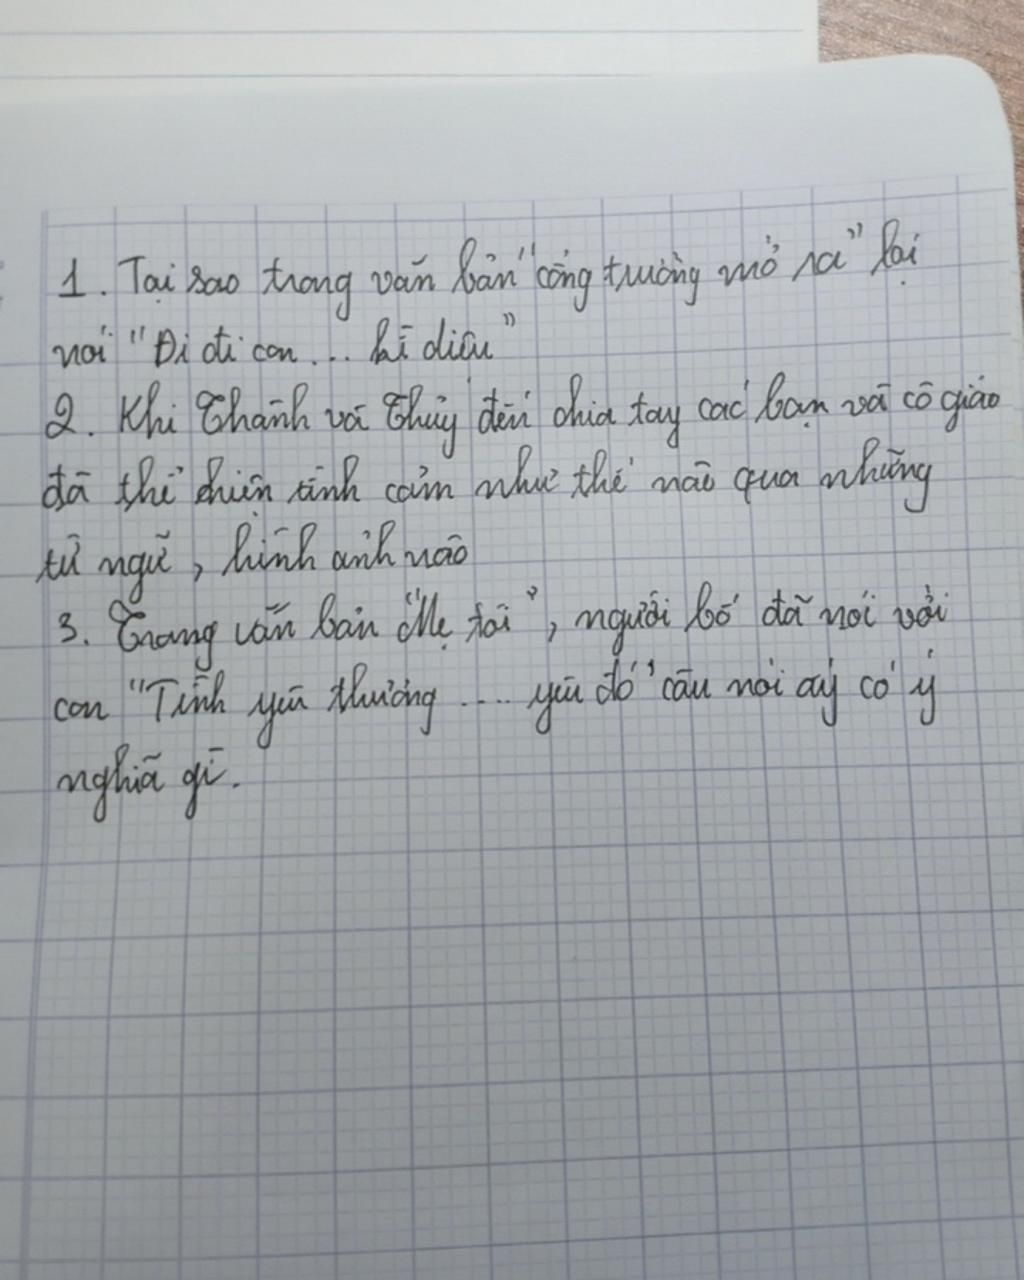 1. Tại sao trong văn bản "cổng trường mở ra" lại
nói "Đi đi con ... kì diệu"
2. Khi Thành và Thủy đến chia tay các bạn và cô giáo
đã thể hiện tình cảm như thế nào qua những
từ ngữ, hình ảnh nào
3. Trong văn bản "Mẹ tôi", người bố đã nói với
con "Tình yêu thương .... yêu đó" câu nói ấy có ý
nghĩa gì.